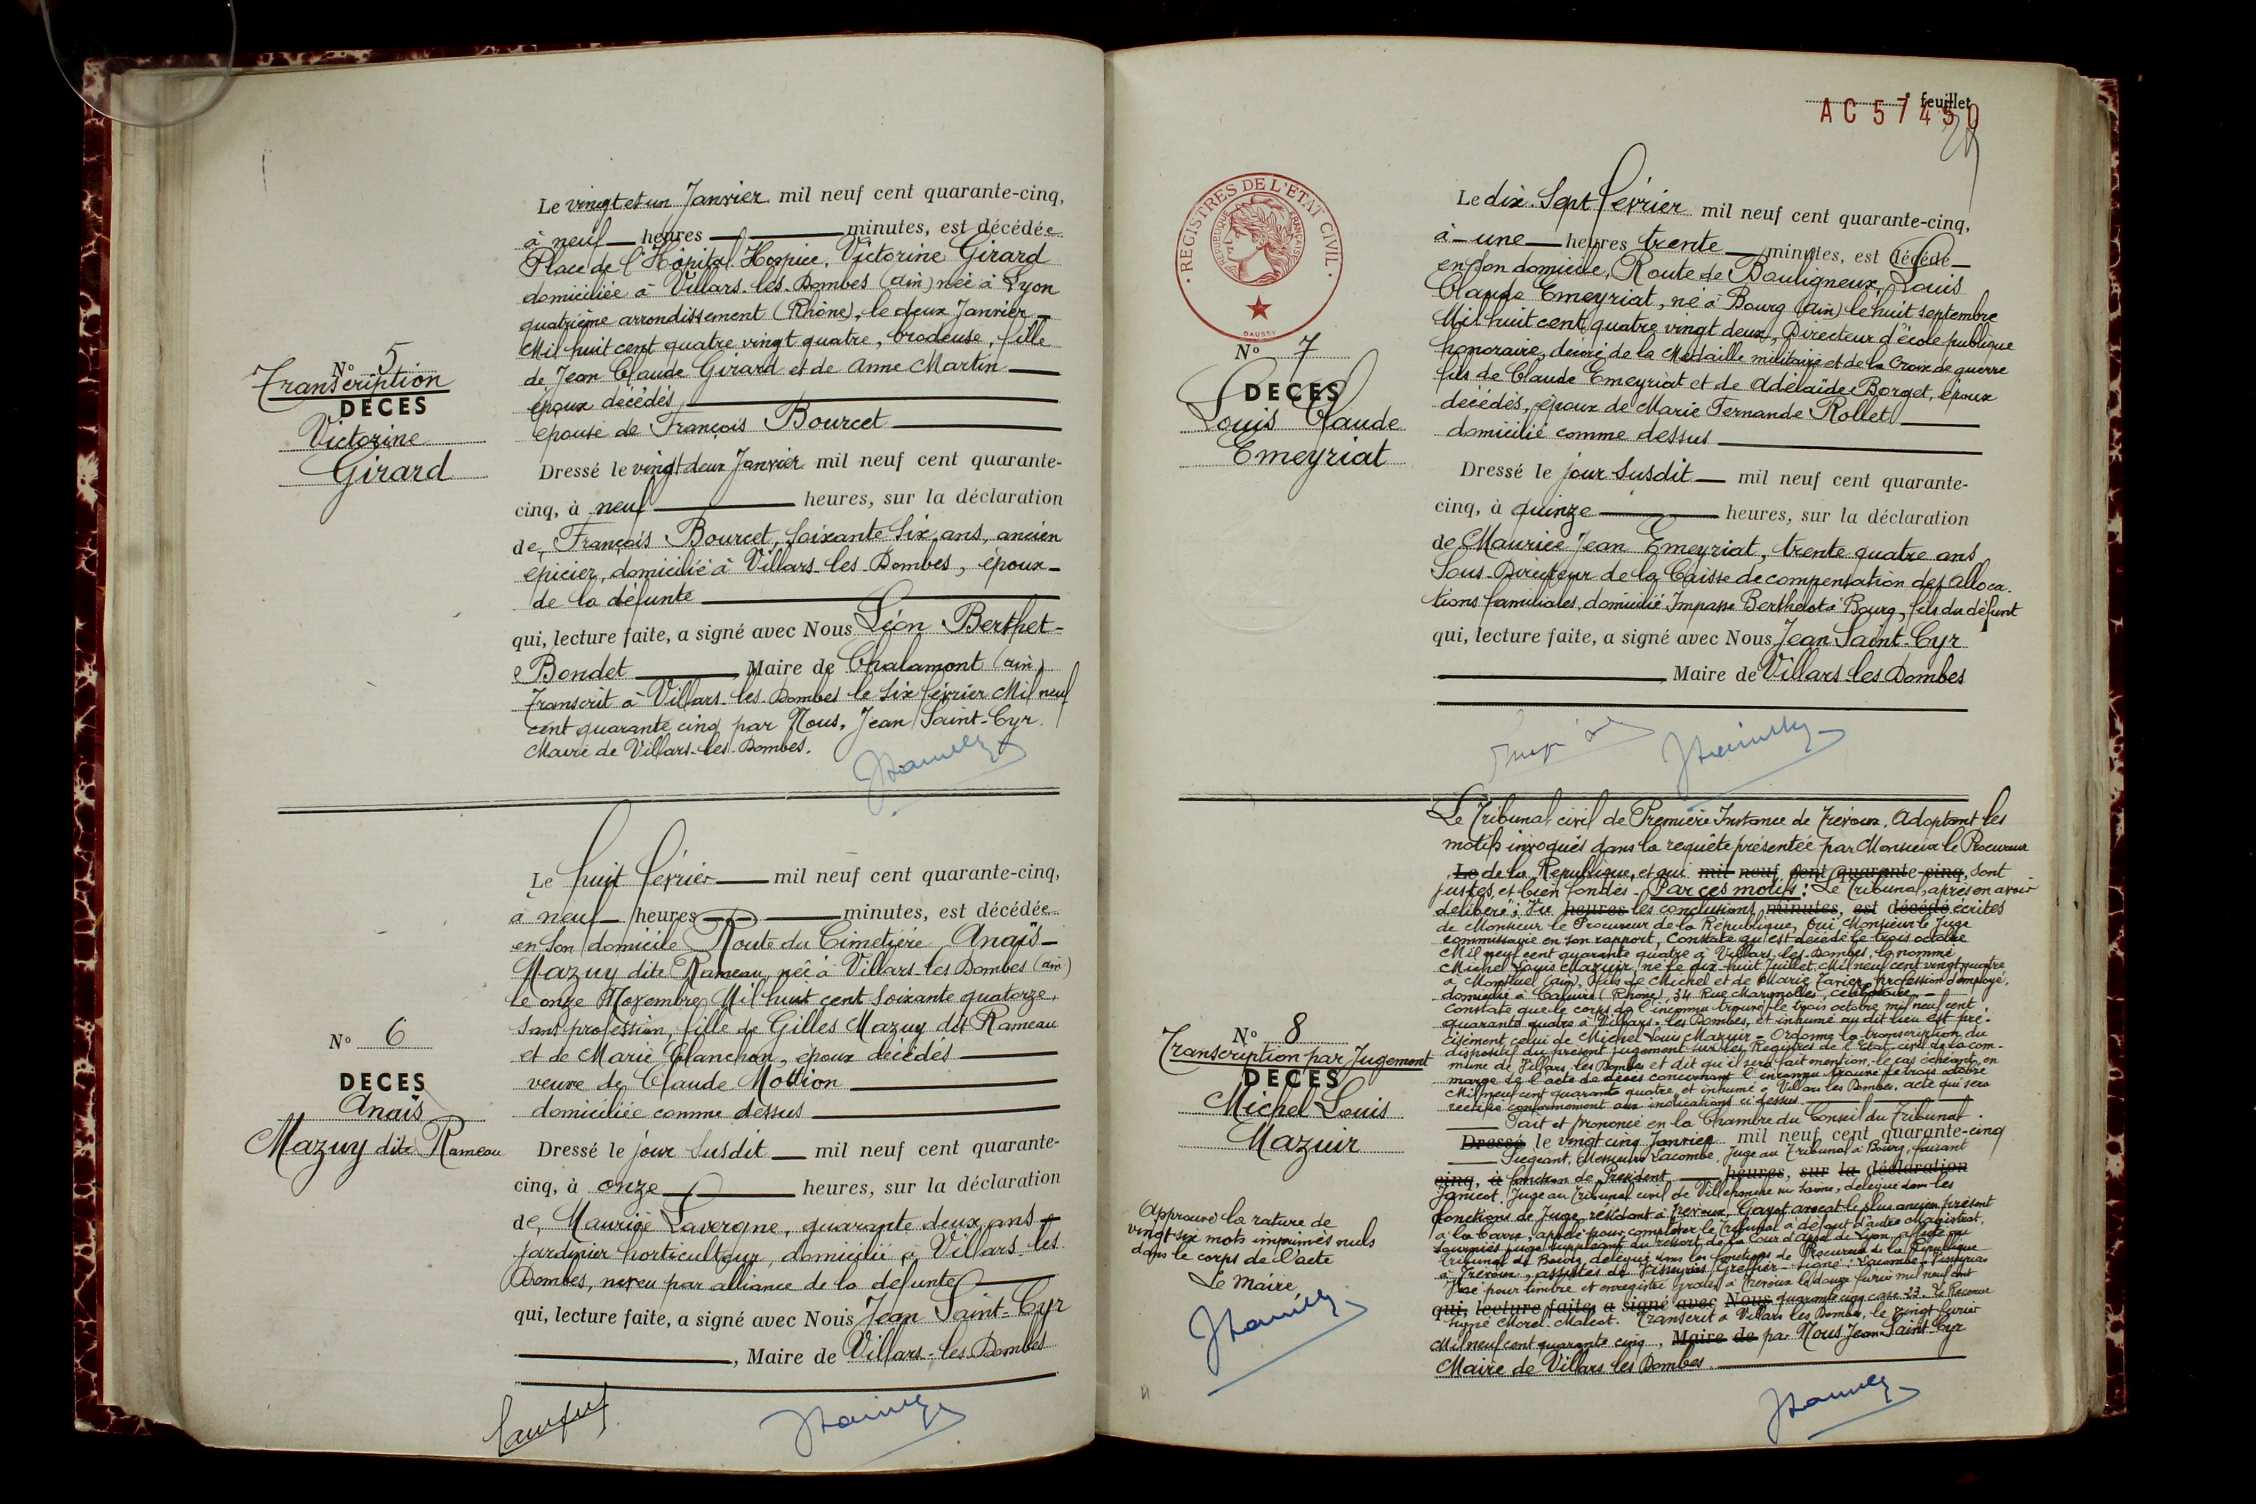 N° 5
Transcription
DECES
Victorine
Girard
Le vingt et un Janvier mil neuf cent quarante-cinq,
à neuf — heures — minutes, est décédée
Place de l'Hôpital Hospice, Victorine Girard
domiciliée à Villars-les-Dombes (Ain) née à Lyon
quatrième arrondissement (Rhône), le deux Janvier —
Mil huit cent quatre vingt quatre, brodeuse, fille
de Jean Claude Girard et de Anne Martin —
époux décédés —
épouse de François Bourcet —
Dressé le vingt deux Janvier mil neuf cent quarante-
cinq, à neuf — heures, sur la déclaration
de François Bourcet, soixante six ans, ancien
épicier, domicilié à Villars-les-Dombes, époux —
de la défunte —
qui, lecture faite, a signé avec Nous Léon Berthet-
Bondet — Maire de Chalamont (Ain)
Transcrit à Villars-les-Dombes le six février Mil neuf
cent quarante cinq par Nous, Jean Saint-Cyr
Maire de Villars-les-Dombes.
N° 6
DECES
Anaïs
Mazuy dite Rameau
Le huit février — mil neuf cent quarante-cinq,
à neuf — heures — minutes, est décédée
en son domicile Route du Cimetière, Anaïs —
Mazuy dite Rameau, née à Villars-les-Dombes (Ain)
le onze Novembre Mil huit cent soixante quatorze,
sans profession, fille de Gilles Mazuy dit Rameau
et de Marie Clanchon, époux décédés —
veuve de Claude Mottion —
domiciliée comme dessus —
Dressé le jour susdit — mil neuf cent quarante-
cinq, à onze — heures, sur la déclaration
de Maurice Lavergne, quarante deux ans —
jardinier horticulteur, domicilié à Villars-les
Dombes, neveu par alliance de la défunte —
qui, lecture faite, a signé avec Nous Jean Saint-Cyr
—, Maire de Villars-les-Dombes
feuillet
AC 57450
REGISTRES DE L'ETAT CIVIL
REPUBLIQUE FRANÇAISE
DAUSSY
N° 7
DECES
Louis Claude
Emeyriat
Le dix-sept février mil neuf cent quarante-cinq,
à — une — heures trente — minutes, est décédé —
en son domicile, Route de Bouligneux, Louis
Claude Emeyriat, né à Bourg (Ain) le huit septembre
Mil huit cent quatre vingt deux, Directeur d'école publique
honoraire, décoré de la Médaille militaire et de la Croix de guerre
fils de Claude Emeyriat et de Adélaïde Borget, époux
décédés, époux de Marie Fernande Rollet —
domicilié comme dessus —
Dressé le jour susdit — mil neuf cent quarante-
cinq, à quinze — heures, sur la déclaration
de Maurice Jean Emeyriat, trente quatre ans
Sous-Directeur de la Caisse de compensation des alloca-
tions familiales, domicilié Impasse Berthelot à Bourg, fils du défunt
qui, lecture faite, a signé avec Nous Jean Saint-Cyr
— Maire de Villars-les-Dombes
N° 8
Transcription par Jugement
DECES
Michel Louis
Mazuir
Approuvé la rature de
vingt-six mots imprimés nuls
dans le corps de l'acte
Le Maire
Le Tribunal civil de Première Instance de Trévoux, Adoptant les
motifs invoqués dans la requête présentée par Monsieur le Procureur
Le de la République, et qui mil neuf cent quarante-cinq, sont
justes et bien fondés - Par ces motifs : Le Tribunal, après en avoir
délibéré ; Vu heures les conclusions minutes, est décédé écrites
de Monsieur le Procureur de la République, Oui Monsieur le Juge
commissaire en son rapport, Constate qu'est décédé le trois octobre
Mil neuf cent quarante quatre à Villars-les-Dombes, le nommé
Michel Louis Mazuir, né le dix-huit juillet Mil neuf cent vingt quatre
à Montluel (Ain), fils de Michel et de Marie Tavier, profession d'employé,
domicilié à Caluire (Rhône), 34 Rue Margnolles, célibataire —
Constate que le corps de l'inconnu trouvé le trois octobre mil neuf cent
quarante quatre à Villars-les-Dombes, et inhumé au dit lieu est pré-
cisément celui de Michel Louis Mazuir - Ordonne la transcription du
dispositif du présent jugement sur les Registres de l'Etat-civil de la com-
mune de Villars les Dombes et dit qu'il sera fait mention, le cas échéant, en
marge de l'acte de décès concernant l'inconnu trouvé le trois octobre
Mil neuf cent quarante quatre, et inhumé à Villars les Dombes, acte qui sera
rectifié conformément aux indications ci dessus. —
Fait et prononcé en la Chambre du Conseil du Tribunal
Dressé le vingt cinq Janvier mil neuf cent quarante-cinq
Siégeant, Messieurs Lacombe, Juge au Tribunal à Bourg, faisant
cinq, à fonction de Président — heures, sur la déclaration
Janicot, Juge au Tribunal civil de Villefranche sur Saône, délégué dans les
fonctions de Juge, résidant à Trévoux, Gayot avocat le plus ancien présent
à la barre, appelé pour compléter le Tribunal à défaut d'autre Magistrat,
juge suppléant du ressort de la Cour d'appel de Lyon,
Tribunal de Bourg, délégué dans les fonctions de Procureur de la République
à Trévoux, assistés de Greffier - Signé : Lacombe
Visé pour timbre et enregistré gratis à Trévoux le douze février mil neuf cent
qui, lecture faite, a signé avec Nous quarante cinq case 23. Le Receveur
signé Morel. Transcrit à Villars les Dombes, le vingt février
Mil neuf cent quarante cinq, Maire de par Nous Jean Saint-Cyr
Maire de Villars les Dombes. —